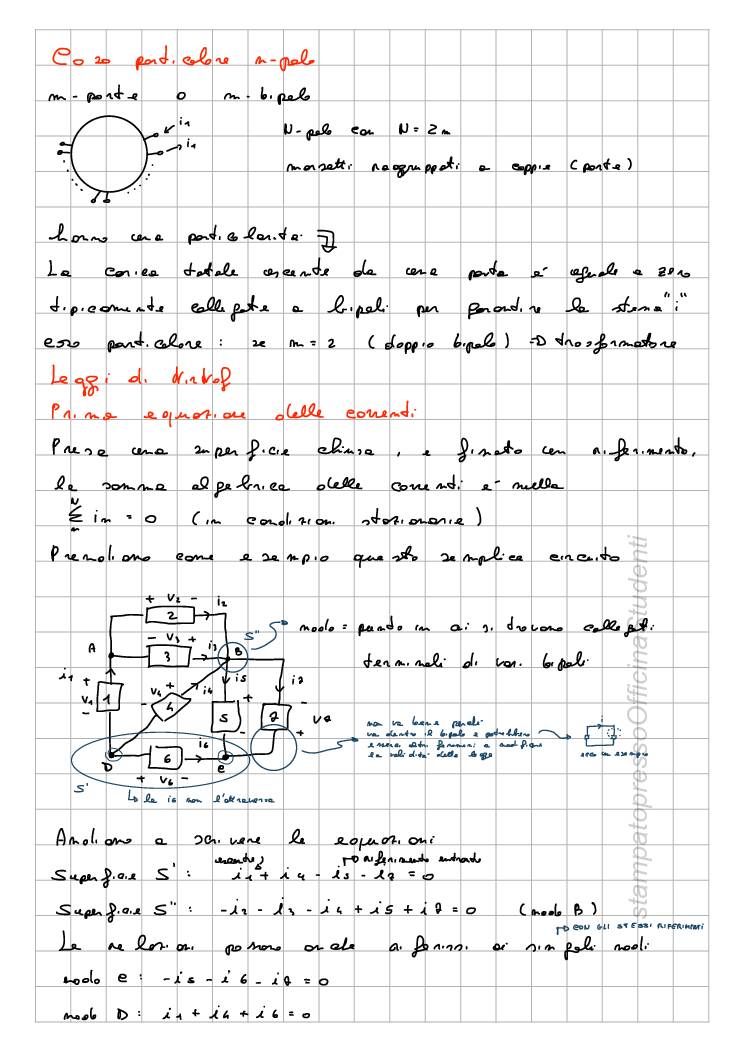 Caso particolare n-polo
m-porte o m-bipolo
i1
i1
N-polo con N = 2m
morsetti raggruppati a coppie (porte)
hanno una particolarità:
La carica totale uscente da una porta è uguale a zero
tipicamente collegate a bipoli per garantire la stessa "i"
caso particolare: se m = 2 (doppio bipolo) => trasformatore
Leggi di Kirkof
Prima equazione delle correnti
Presa una superficie chiusa, e fissato un riferimento,
la somma algebrica delle correnti è nulla
N
Σ in = 0 (in condizioni stazionarie)
n
Prendiamo come esempio questo semplice circuito
+ V2 -
i2
2
A
- V3 +
3
i3
B
S"
nodo = punto in cui si trovano collegati
terminali di vari bipoli
i1
+
V1
-
1
V4
+
-
4
i4
i5
+
5
-
i7
-
7
V7
+
non va bene perché
va dentro il bipolo e potrebbero
essere altri fenomeni a modificare
la validità della legge
i
D
6
i6
e
+ V6 -
S'
la i6 non l'attraversa
Andiamo a scrivere le equazioni
uscente
riferimento entrante
Superficie S': i1 + i4 - i5 - i7 = 0
Superficie S": -i2 - i3 - i4 + i5 + i7 = 0 (nodo B)
CON GLI STESSI RIFERIMENTI
Le relazioni possono anche riferirsi ai singoli nodi
nodo e: -i5 - i6 - i7 = 0
nodo D: i1 + i4 + i6 = 0
stampatopressoOfficinaStudenti